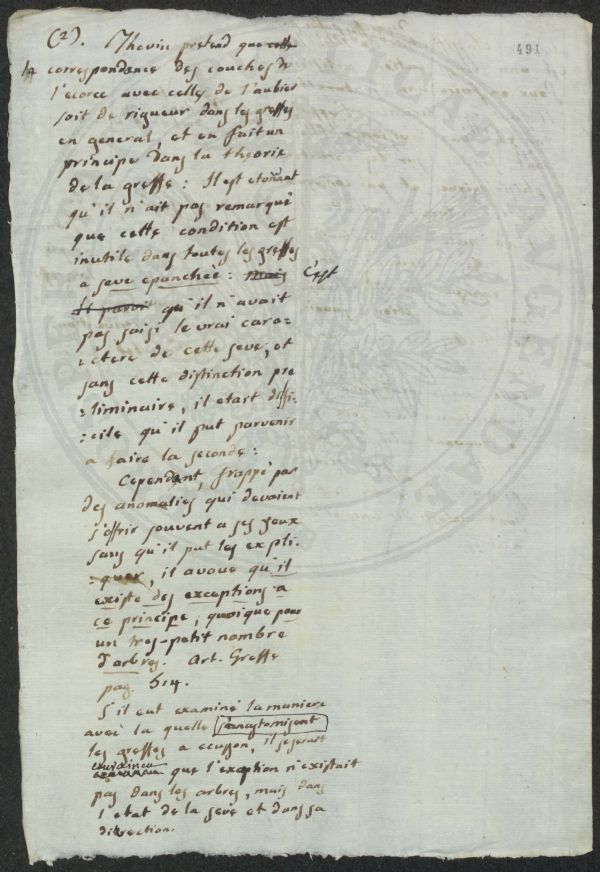 491
(2). Thouin pretend que cette
la correspondance des couches de
l'ecorce avec celles de l'aubier
soit de rigueur dans les greffes
en general, et en fait un
principe dans la theorie
de la greffe: Il est etonnant
qu'il n'ait pas remarqué
que cette condition est
inutile dans toutes les greffes
a seve epanchée: Mais C'est
Il paroit qu'il n'avait
pas saisi le vrai cara=
=ctere de cette seve, et
sans cette distinction pre
=liminaire, il etait diffi=
=cile qu'il put parvenir
a faire la seconde:
Cependant, frappé par
des anomalies qui devaient
s'offrir souvent a ses yeux
sans qu'il put les expli=
=quer, il avoue qu'il
existe des exceptions a
ce principe, quoique pour
un tres-petit nombre
d'arbres. Art. Greffe
pag. 514.
S'il eut examiné la maniere
avec la quelle s'anastomisent
les greffes a ecusson, il se serait
convaincu
que l'exception n'existait
pas dans les arbres, mais dans
l'etat de la seve et dans sa
direction.